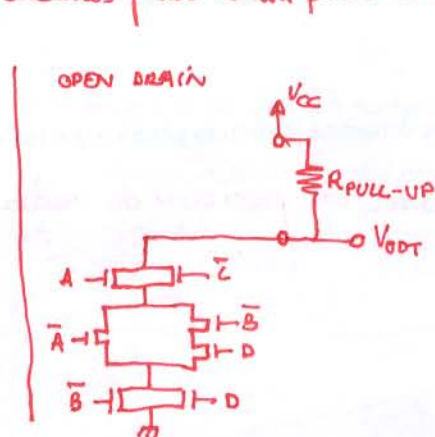 OPEN DRAIN
V_CC
R_PULL-UP
V_OUT
A
C̅
A̅
B̅
D
B̅
D